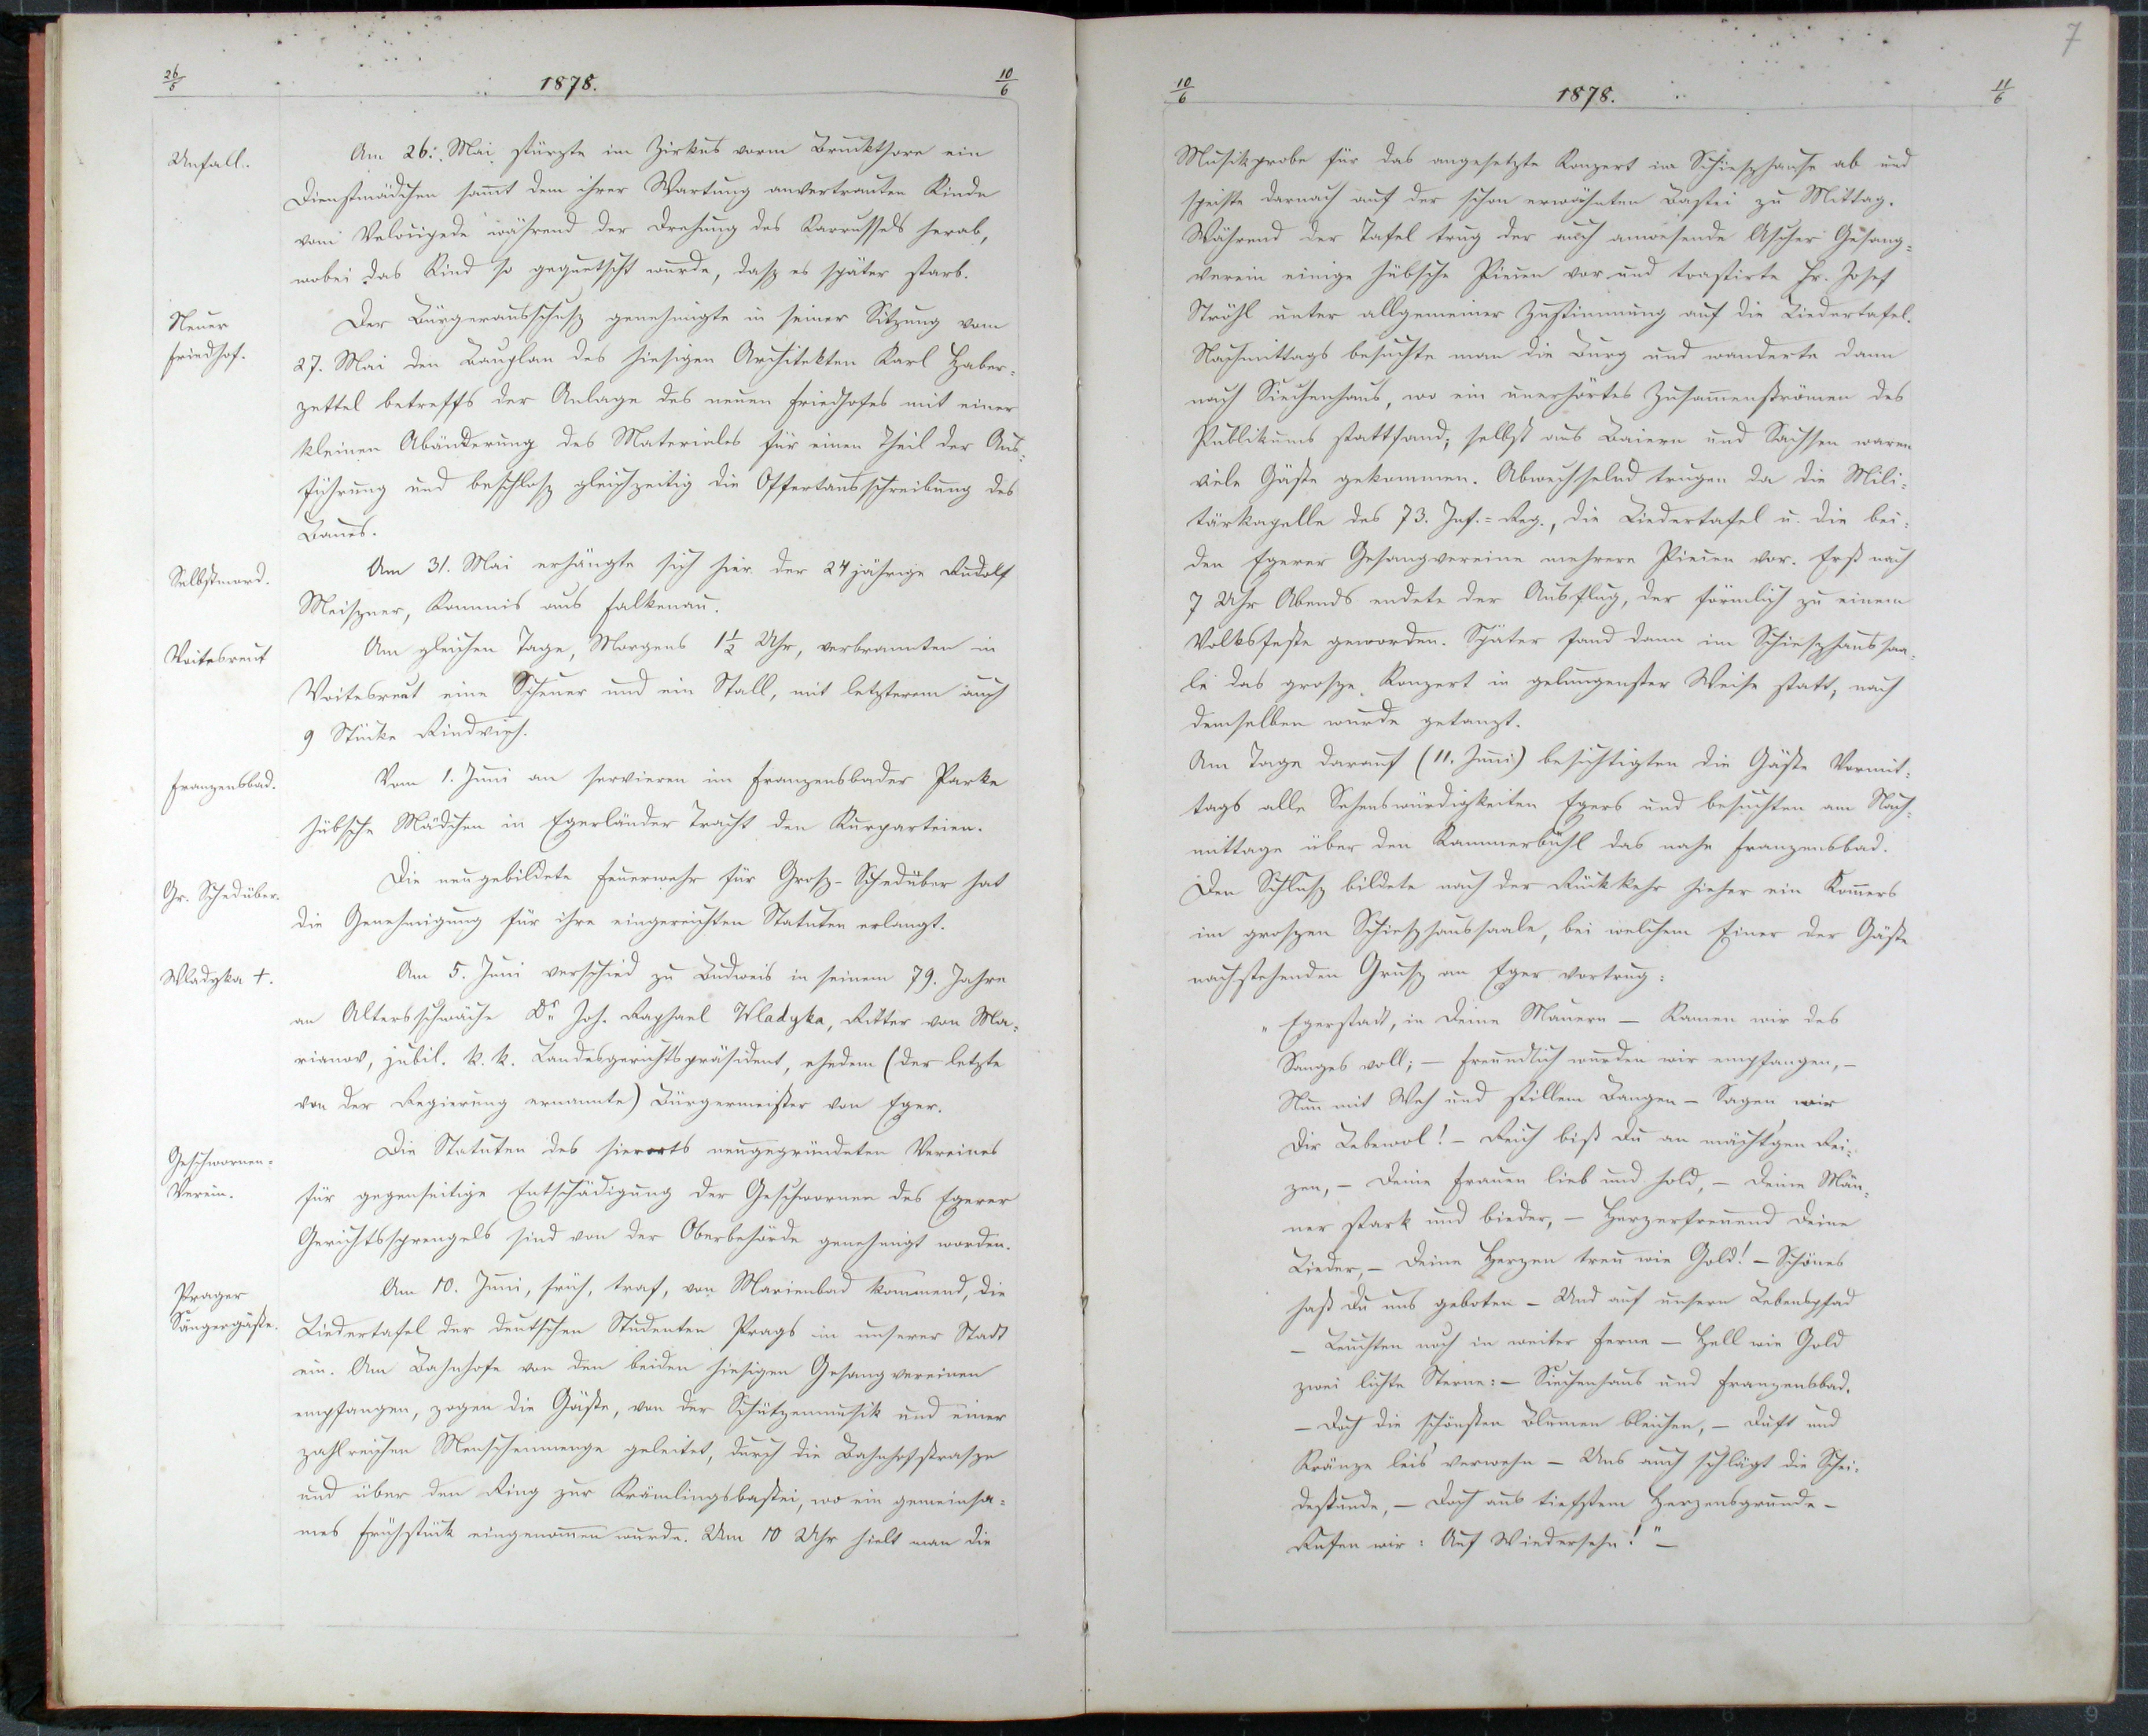 26/5
1878.
10/6
Unfall.
Am 26. Mai stürzte im Zirkus vorm Bruckthore ein
Dienstmädchen sammt dem ihrer Wartung anvertrauten Kinde
vom Velocipede während der Drehung des Karrussels herab,
wobei das Kind so gequetscht wurde, dasz es später starb.
Neuer
Friedhof.
Der Bürgerausschusz genehmigte in seiner Sitzung vom
27. Mai den Bauplan des hiesigen Architekten Karl Haber=
zettel betreffs der Anlage des neuen Friedhofes mit einer
kleinen Abänderung des Materiales für einen Theil der Aus=
führung und beschlosz gleichzeitig die Offertausschreibung des
Baues.
Selbstmord.
Am 31. Mai erhängte sich hier der 24 jährige Rudolf
Meiszner, Kommis aus Falkenau.
Voitesreut
Am gleichen Tage, Morgens 1½ Uhr, verbrannten in
Voitesreut eine Scheuer und ein Stall, mit letzterem auch
9 Stücke Rindvieh.
Franzensbad.
Vom 1. Juni an servieren im Franzensbader Parke
hübsche Mädchen in Egerländer Tracht den Kurparteien.
Gr. Schedüber.
Die neugebildete Feuerwehr für Grosz-Schedüber hat
die Genehmigung für ihre eingereichten Statuten erlangt.
Wladyka †.
Am 5. Juni verschied zu Budweis in seinem 79. Jahre
an Altersschwäche Dr. Joh. Raphael Wladyka, Ritter von Ma=
rianov, jubil. k. k. Landesgerichtspräsident, ehedem (der letzte
von der Regierung ernannte) Bürgermeister von Eger.
Geschwornen=
Verein.
Die Statuten des hierorts neugegründeten Vereines
für gegenseitige Entschädigung der Geschwornen des Egerer
Gerichtssprengels sind von der Oberbehörde genehmigt worden.
Prager
Sängergäste.
Am 10. Juni, früh, traf, von Marienbad kommend, die
Liedertafel der deutschen Studenten Prags in unserer Stadt
ein. Am Bahnhofe von den beiden hiesigen Gesangvereinen
empfangen, zogen die Gäste, von der Schützenmusik und einer
zahlreichen Menschenmenge geleitet, durch die Bahnhofstrasze
und über den Ring zur Krämlingsbastei, wo ein gemeinsa=
mes Frühstük eingenommen wurde. Um 10 Uhr hielt man die
7
10/6
1878.
11/6
Musikprobe für das angesetzte Konzert im Schieszhause ab und
speiste darnach auf der schon erwähnten Bastei zu Mittag.
Während der Tafel trug der auch anwesende Ascher Gesang=
verein einige hübsche Piecen vor und toastirte Hr. Josef
Ströhl unter allgemeiner Zustimmung auf die Liedertafel.
Nachmittags besuchte man die Burg und wanderte dann
nach Siechenhaus, wo ein unerhörtes Zusammenströmen des
Publikums stattfand; selbst aus Baiern und Sachsen waren
viele Gäste gekommen. Abwechselnd trugen da die Mili=
tärkapelle des 73. Inf.=Reg., die Liedertafel u. die bei=
den Egerer Gesangvereine mehrere Piecen vor. Erst nach
7 Uhr Abends endete der Ausflug, der förmlich zu einem
Volksfeste geworden. Später fand dann im Schieszhaussaa=
le das grosze Konzert in gelungenster Weise statt, nach
demselben wurde getanzt.
Am Tage darauf (11. Juni) besichtigten die Gäste Vormit=
tags alle Sehenswürdigkeiten Egers und besuchten am Nach=
mittage über den Kammerbühl das nahe Franzensbad.
Den Schlusz bildete nach der Rückkehr hieher ein Kommers
im groszen Schieszhaussaale, bei welchem Einer der Gäste
nachstehenden Grusz an Eger vortrug:
„Egerstadt, in Deine Mauern – Kamen wir des
Sanges voll; – Freundlich wurden wir empfangen, –
Nun mit Weh und stillem Bangen – Sagen wir
Dir Lebewol! – Reich bist Du an mächt'gen Rei=
zen, – Deine Frauen lieb und hold, – Deine Män=
ner stark und bieder, – Herzerfreuend Deine
Lieder, – Deine Herzen treu wie Gold! – Schönes
hast Du uns geboten – Und auf unsern Lebenspfad
– Leuchten noch in weiter Ferne – Hell wie Gold
zwei lichte Sterne: – Siechenhaus und Franzensbad.
– Doch die schönsten Blumen bleichen, – Duft und
Kränze leis' verwehn – Uns auch schlägt die Schei=
destunde, – Doch aus tiefstem Herzensgrunde –
Rufen wir: Auf Wiedersehn!" –